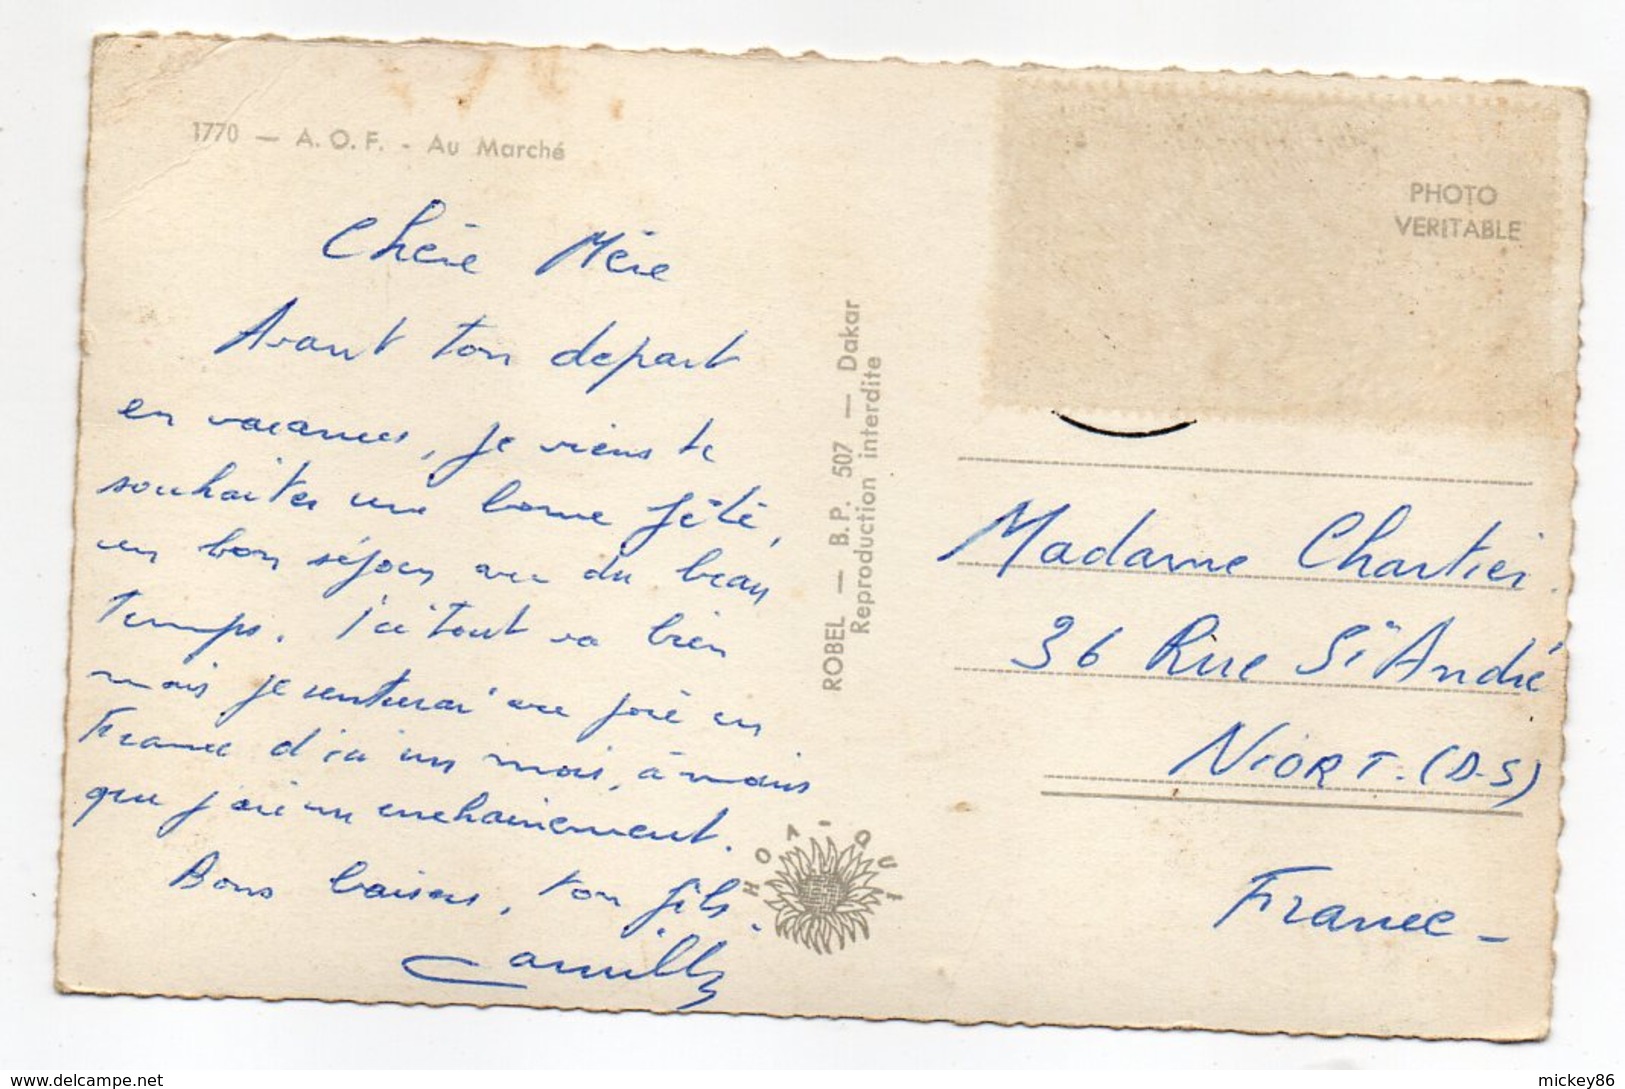 1770 — A. O. F. - Au Marché
Chère Mère
Avant ton depart
en vacances, je viens te
souhaiter une bonne fête,
un bon séjour avec du beau
temps. Ici tout va bien
mais je rentrerai avec joie en
France d'ici un mois, à moins
que j'aie un enchainement.
Bons baisers, ton fils.
Camille
ROBEL — B. P. 507 — Dakar
Reproduction interdite
HOA-QUI
PHOTO
VERITABLE
Madame Chartier.
36 Rue St André
NIORT. (D-S)
France -
www.delcampe.net
mickey86